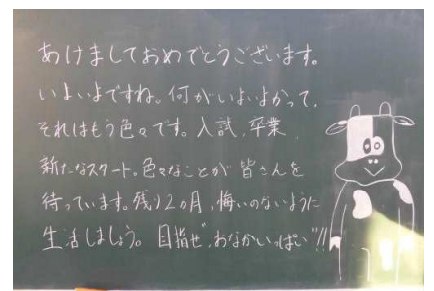 あけましておめでとうございます。
いよいよですね。何がいよいよかって、
それはもう色々です。入試、卒業、
新たなスタート。色々なことが皆さんを
待っています。残り2ヵ月、悔いのないように
生活しましょう。目指せ"おなかいっぱい"!!